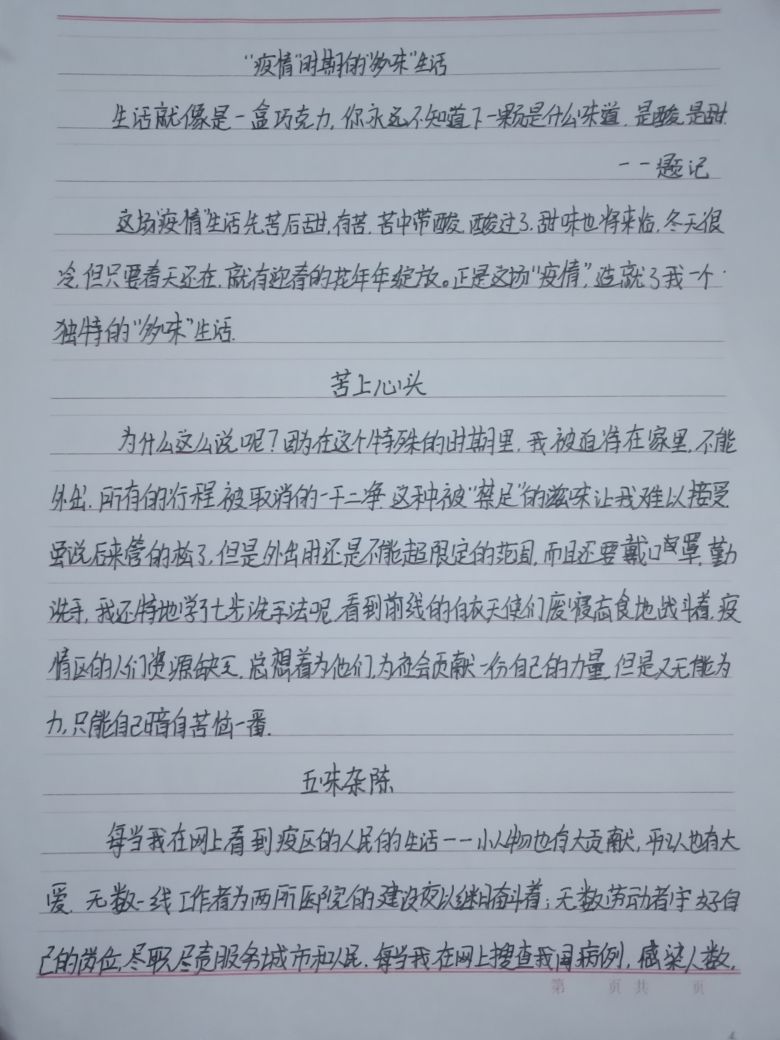 “疫情”时期的“多味”生活
生活就像是一盒巧克力,你永远不知道下一颗是什么味道,是酸,是甜.
——题记
这场“疫情”生活先苦后甜,有苦,苦中带酸,酸过了,甜味也将来临,冬天很
冷,但只要春天还在,就有迎春的花年年绽放。正是这场“疫情”,造就了我一个
独特的“多味”生活.
苦上心头
为什么这么说呢?因为在这个特殊的时期里,我被迫待在家里,不能
外出.所有的行程被取消的一干二净.这种被“禁足”的滋味让我难以接受
虽说后来管的松了,但是外出用还是不能超限定的范围,而且还要戴口罩,勤
洗手,我还特地学了七步洗手法呢.看到前线的白衣天使们废寝忘食地战斗着,疫
情区的人们资源缺乏,总想着为他们,为社会贡献一份自己的力量,但是又无能为
力,只能自己暗自苦恼一番.
五味杂陈
每当我在网上看到疫区的人民的生活——小人物也有大贡献,平凡也有大
爱.无数一线工作者为两所医院的建设夜以继日奋斗着;无数劳动者守好自
己的岗位,尽职尽责服务城市和人民.每当我在网上搜查我国病例,感染人数,
第 页 共 页